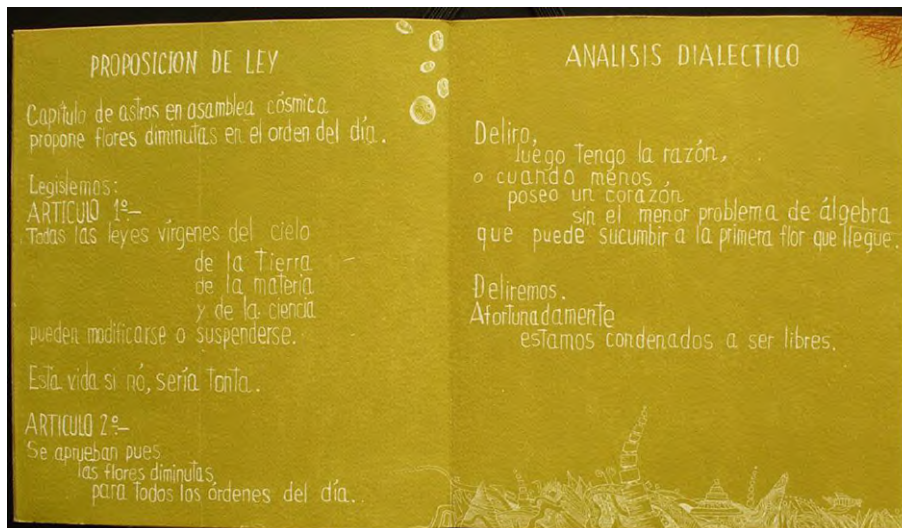 PROPOSICION DE LEY
Capítulo de astros en asamblea cósmica
propone flores diminutas en el orden del día.
Legislemos:
ARTICULO 1º–
Todas las leyes vírgenes del cielo
de la Tierra
de la materia
y de la ciencia
pueden modificarse o suspenderse.
Esta vida si nó, sería tonta.
ARTICULO 2º–
Se aprueban pues
las flores diminutas
para todos los órdenes del día.
ANALISIS DIALECTICO
Deliro,
luego tengo la razón,
o cuando menos,
poseo un corazón
sin el menor problema de álgebra
que puede sucumbir a la primera flor que llegue.
Deliremos.
Afortunadamente
estamos condenados a ser libres.